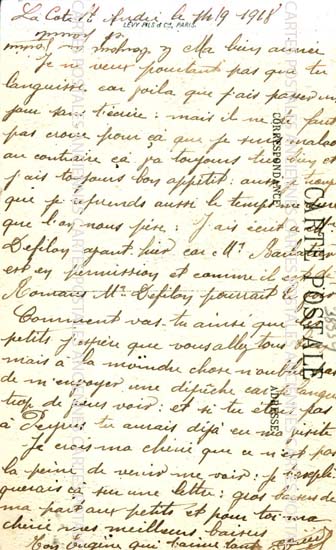 La Cote St André le 14/9 1918
LEVY FILS et Cie, PARIS.
Ma bien aimée
Je ne veux pourtant pas que tu
languisse car voila que j'ais passer un
jour sans t'écrire : mais il ne faut
pas croire pour çà que je suis malade
au contraire çà va toujours très bien et
j'ais toujours bon appetit : aussi
que je reprends aussi le temps
que l'on nous pèse : J'ais écrit a
Defilon avant hier car Mr
est en permission et comme il est
Romans Mr Defilon pourrait le
Comment vas-tu ainsi que
petits j'espère que vous allez tous
mais à la moindre chose n'oublie
de m'envoyer une dépêche car
trop de vous voir : et si tu étais
à Peyrus tu aurais déjà eu ma visite
Je crois ma chérie que ce n'est pas
la peine de venir me voir : je t'expli
querais çà sur une lettre : gros baisers de
ma part aux petits et pour toi ma
chérie mes meilleurs baisers
Ton Eugène qui t'aime
CARTE POSTALE
CORRESPONDANCE
ADRESSE